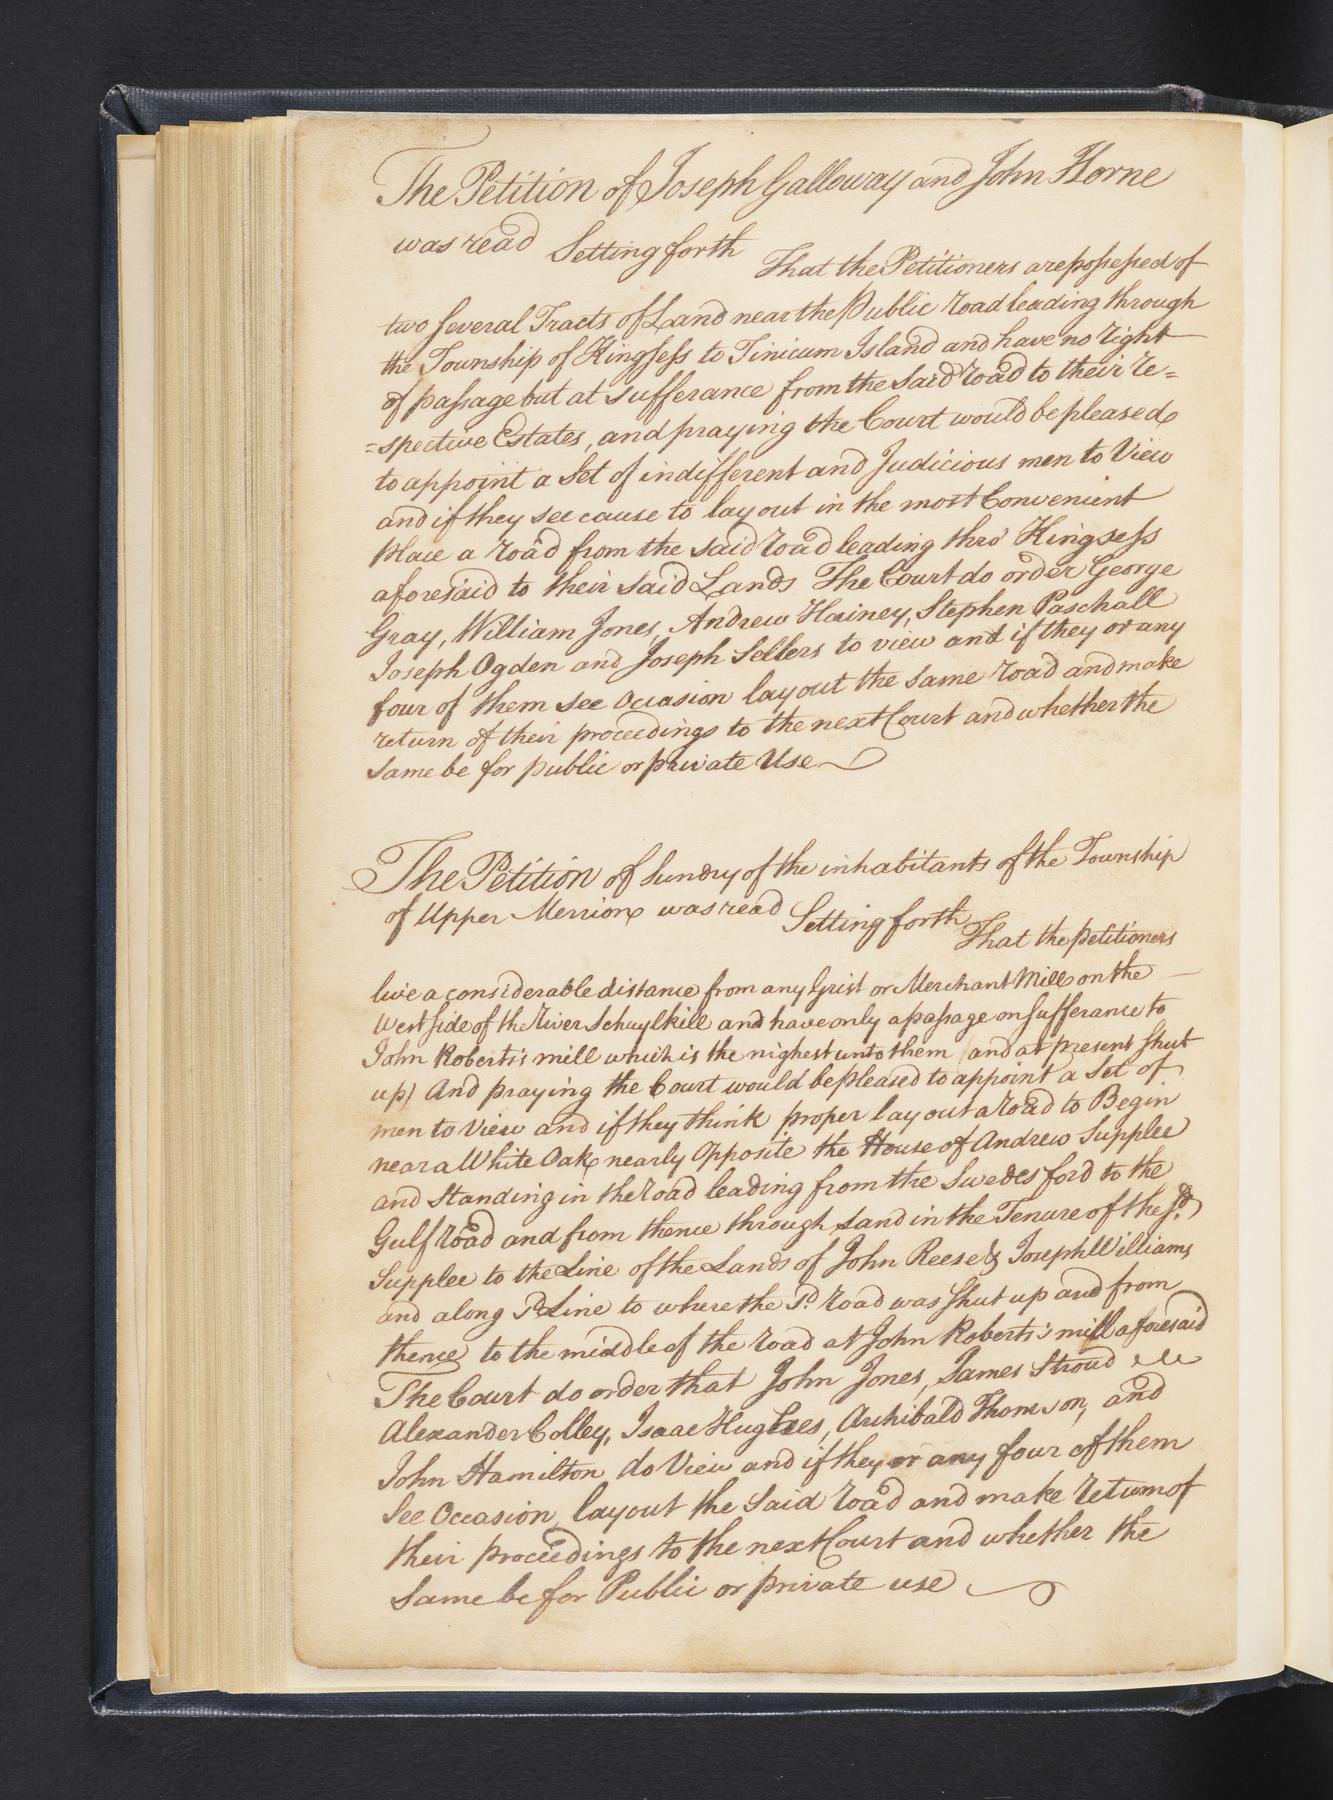 The Petition of Joseph Galloway and John Horne
was read Setting forth That the Petitioners are possessed of
two several Tracts of Land near the Public road leading through
the Township of Kingsess to Tinicum Island and have no right
of passage but at sufferance from the said road to their re=
=spective Estates, and praying the Court would be pleased
to appoint a Set of indifferent and Judicious men to View
and if they see cause to lay out in the most Convenient
place a road from the said road leading thro' Kingsess
aforesaid to their said Lands The Court do order George
Gray, William Jones, Andrew Hainey, Stephen Paschall
Joseph Ogden and Joseph Sellers to view and if they or any
four of them see Occasion lay out the same road and make
return of their proceedings to the next Court and whether the
same be for public or private Use
The Petition of Sundry of the inhabitants of the Township
of Upper Merrion was read Setting forth That the petitioners
live a considerable distance from any Grist or Merchant Mill on the
West side of the River Schuylkill and have only a passage on sufferance to
John Roberts's mill which is the nighest unto them (and at present shut
up) And praying the Court would be pleased to appoint a Set of
men to View and if they think proper lay out a road to Begin
near a White Oak nearly Opposite the House of Andrew Supplee
and Standing in the road leading from the Swedes ford to the
Gulf road and from thence through Land in the Tenure of the sd.
Supplee to the Line of the Lands of John Reese & Joseph Williams
and along sd Line to where the sd. road was shut up and from
thence to the middle of the road at John Roberts's mill aforesaid
The Court do order that John Jones, James Stroud
Alexander Colley, Isaac Hughes, Archibald Thomson, and
John Hamilton do View and if they or any four of them
See Occasion, lay out the said road and make return of
their proceedings to the next Court and whether the
same be for Public or private use